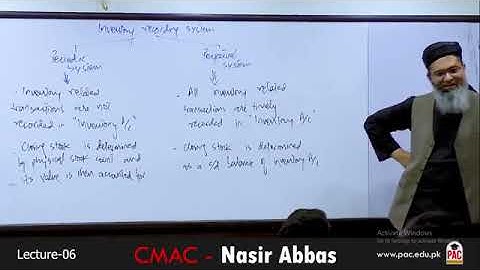 Inventory recording system
Periodic system
Perpetual system
- Inventory related
transactions are not
recorded in "Inventory A/c"
- Closing stock is determined
by physical stock count and
its value is then accounted for
- All inventory related
transactions are timely
recorded in "Inventory A/c"
- Closing stock is determined
as a c/d balance of Inventory A/c
Activate Windows
Go to Settings to activate Windows.
Lecture-06
CMAC - Nasir Abbas
www.pac.edu.pk
PAC